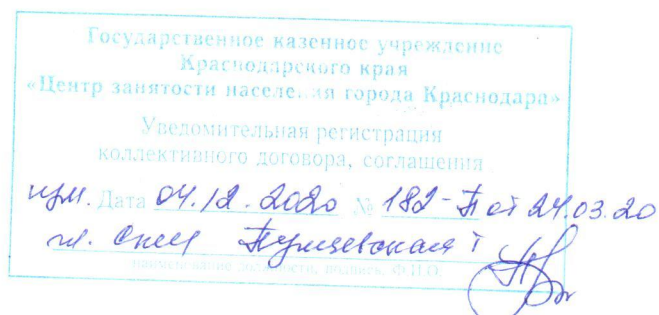 Государственное казенное учреждение
Краснодарского края
«Центр занятости населения города Краснодара»
Уведомительная регистрация
коллективного договора, соглашения
изм. Дата 04.12.2020 № 182-П от 24.03.20
гл. спец
наименование должности, подпись, Ф.И.О.